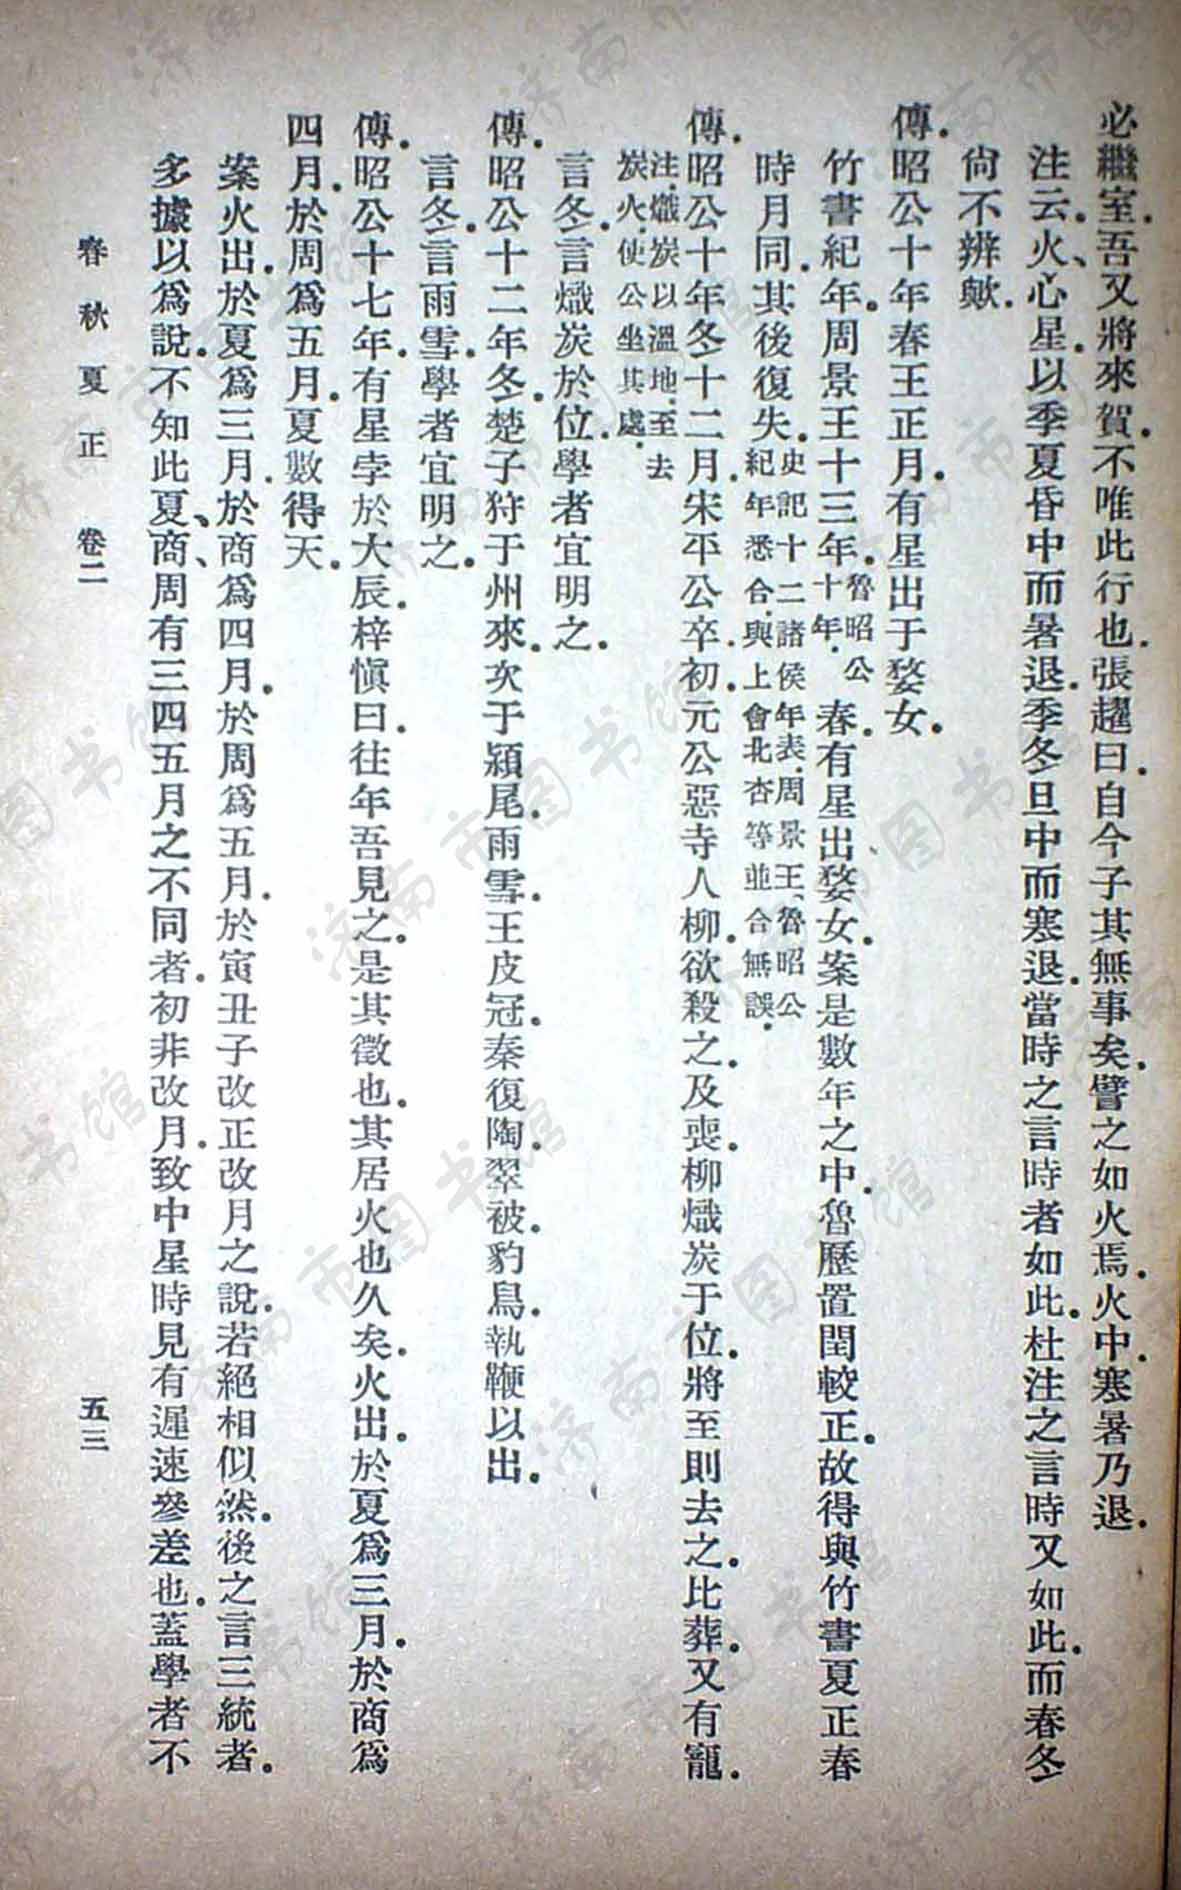 必繼室。吾又將來賀。不唯此行也。張趯曰。自今子其無事矣。譬之如火焉。火中。寒暑乃退。
注云。火、心星。以季夏昏中而暑退。季冬旦中而寒退。當時之言時者如此。杜注之言時又如此。而春冬
尙不辨歟。
傳。昭公十年春王正月。有星出于婺女。
竹書紀年。周景王十三年。魯昭公十年。春。有星出婺女。案是數年之中。魯歷置閏較正。故得與竹書夏正春
時月同。其後復失。史記十二諸侯年表。周景王、魯昭公紀年悉合。與上會北杏等並合無誤。
傳。昭公十年冬十二月。宋平公卒。初。元公惡寺人柳。欲殺之。及喪。柳熾炭于位。將至則去之。比葬。又有寵。
注。熾炭以溫地。至去炭火。使公坐其處。
言冬。言熾炭於位。學者宜明之。
傳。昭公十二年冬。楚子狩于州來。次于潁尾。雨雪。王皮冠。秦復陶。翠被。豹舄。執鞭以出。
言冬。言雨雪。學者宜明之。
傳。昭公十七年。有星孛於大辰。梓愼曰。往年吾見之。是其徵也。其居火也久矣。火出。於夏爲三月。於商爲
四月。於周爲五月。夏數得天。
案火出。於夏爲三月。於商爲四月。於周爲五月。於寅丑子改正改月之說。若絕相似然。後之言三統者。
多據以爲說。不知此夏、商、周有三四五月之不同者。初非改月。致中星時見有遲速參差也。蓋學者不
春秋夏正 卷二 五三
济南市图书馆